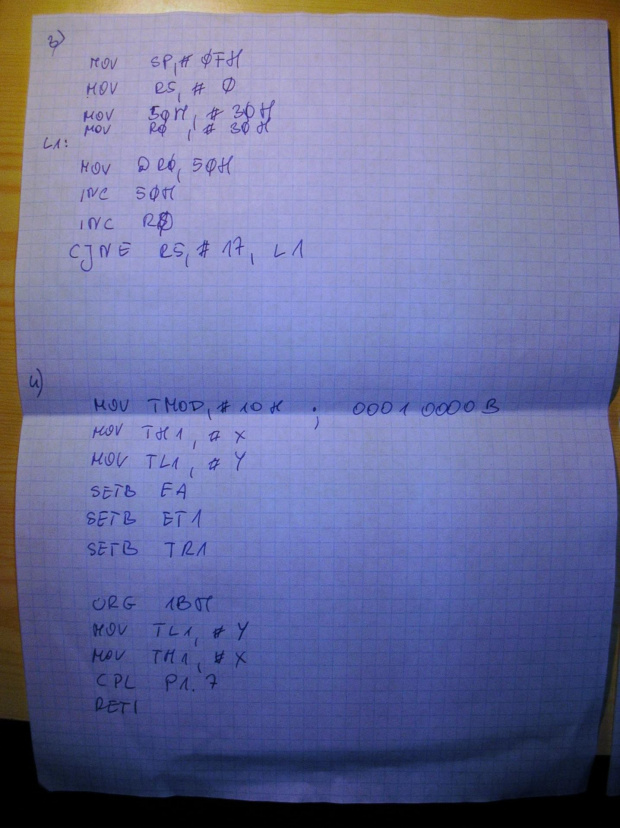 3)
MOV SP, # ØFH
MOV R5, # Ø
MOV 5ØH, # 3ØH
MOV RØ, # 3ØH
L1:
MOV @RØ, 5ØH
INC 5ØH
INC RØ
CJNE R5, # 17, L1
4)
MOV TMOD, # 10H ; 0001 0000B
MOV TH1, # X
MOV TL1, # Y
SETB EA
SETB ET1
SETB TR1
ORG 1BH
MOV TL1, # Y
MOV TH1, # X
CPL P1.7
RETI